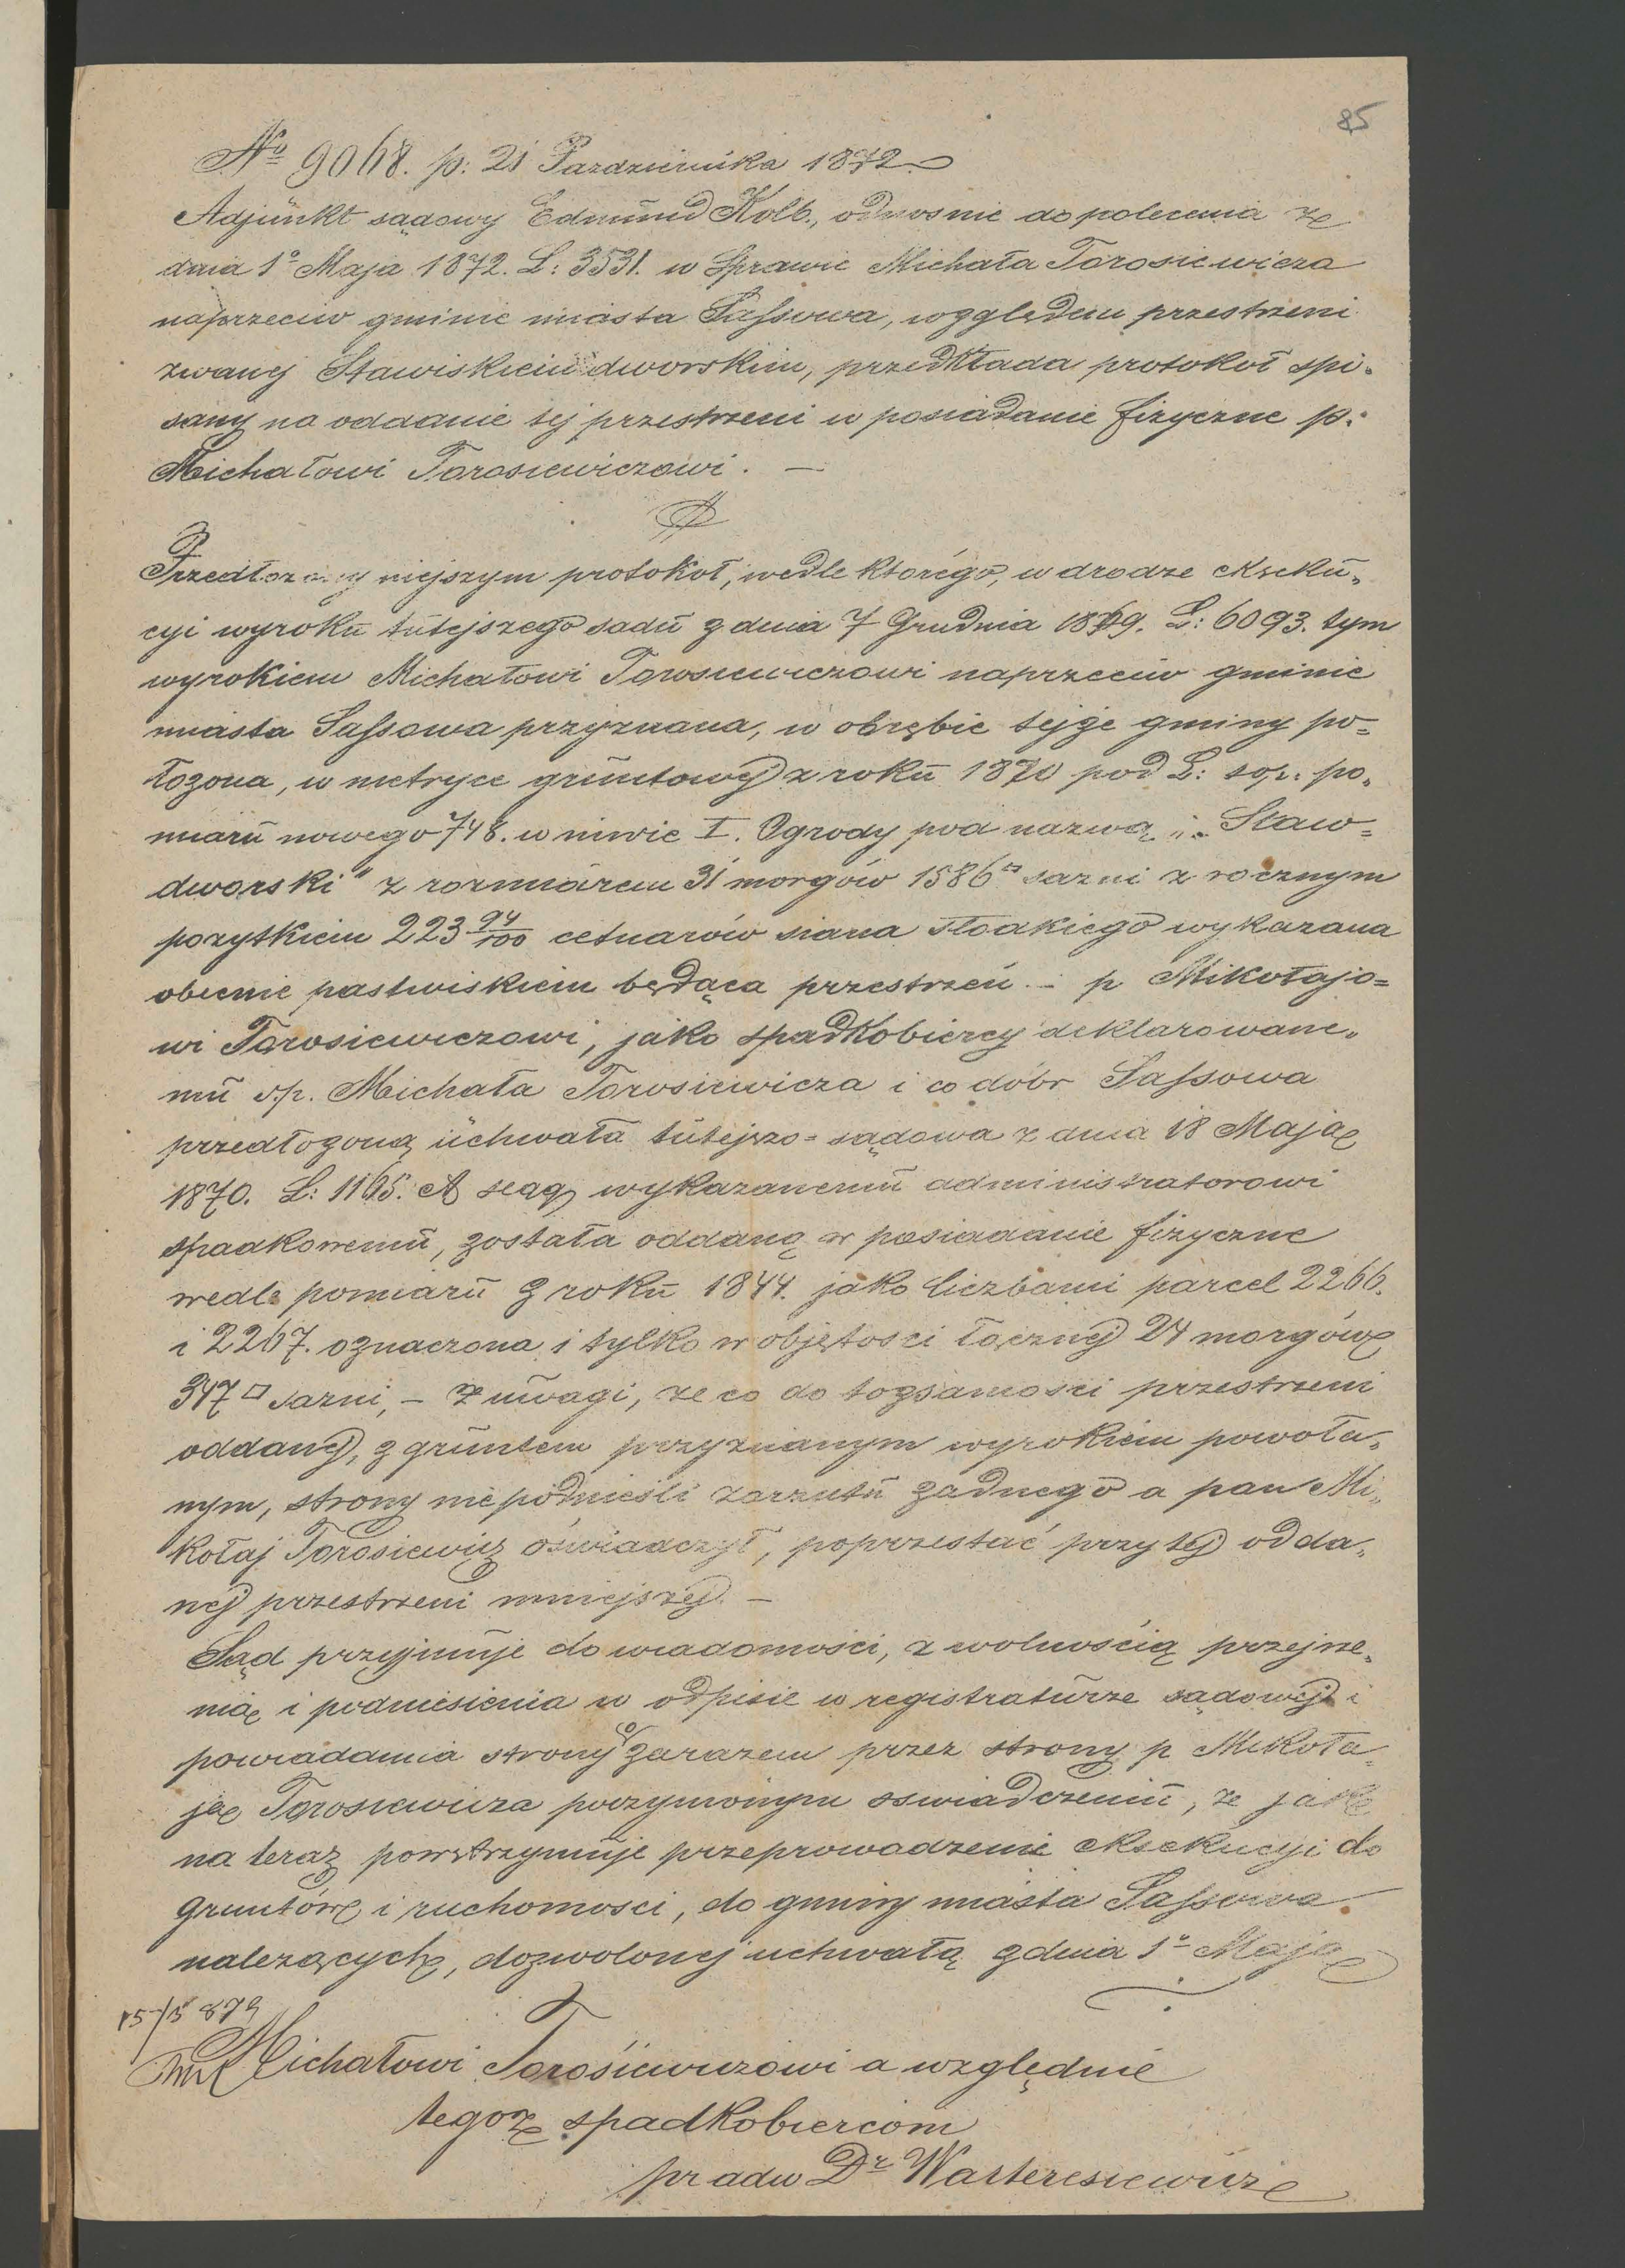 85
No 9068. p: 21 Pazdziernika 1872.
Adjunkt sądowy Edmund Kolb., odnosnie do polecenia ze
dnia 1o Maja 1872. L: 3531. w Sprawie Michała Torosiewicza
naprzeciw gminie miasta Sassowa, względem przestrzeni
zwanej Stawiskiem dworskim, przedkłada protokoł spi-
sany na oddanie tej przestrzeni w posiadanie fizyczne p:
Michałowi Torosiewiczowi. —
Przedłozony niejszym protokoł, wedle ktorégo, w drodze ekseku-
cyi wyroku tutejszego sadu z dnia 7 Grudnia 1869. L: 6093. tym
wyrokiem Michałowi Torosiewiczowi naprzeciw gminie
miasta Sassowa przyznana, w obrębie tejże gminy po-
łozona, w metryce gruntowej z roku 1870 pod L: top: po-
miaru nowego 748. w niwie I. Ogrody pod nazwą „Staw-
dworski" z rozmiarem 31 morgów 1586□ sazni z rocznym
pozytkiem 223 94/100 cetnarów siana słodkiego wykazana
obecnie pastwiskiem będąca przestrzeń. — p Mikołajo-
wi Torosiewiczowi, jako spadkobiercy deklarowane-
mu s.p. Michała Torosiewicza i co dóbr Sassowa
przedłożoną uchwała tutejszo-sądowa z dnia 18 Maja
1870. L: 1165. A seag wykazanemu administratorowi
spadkowemu, została oddaną w posiadanie fizyczne
wedle pomiaru z roku 1844. jako liczbami parcel 2266.
i 2267. oznaczona i tylko w objętosci łącznej 24 morgów
347□ sazni, — z uwagi, ze co do togsamosci przestrzeni
oddanej, z gruntem przyznanym wyrokiem powoła-
nym, strony niepodnieśli zarzutu żadnego a pan Mi-
kołaj Torosiewicz oświadczył, poprzestać przy tej odda-
nej przestrzeni mniejszej. —
Sąd przyjmuje do wiadomości, z wolnością przejrze-
nia i podniesienia w odpisie w registraturze sądowej i
powiadamia strony zarazem przez stronę p Mikoła-
ja Torosiewicza poczynionym oswiadczeniu, ze jak
na teraz powstrzymuje przeprowadzenie eksekucyi do
gruntów i ruchomosci, do gminy miasta Sassowa
nalezących, dozwolonej uchwałą z dnia 1o Maja
15/5 879
Michałowi Torośiewiczowi a względnie
tegoz spadkobiercom
pr adw Dr Warteresiewicz